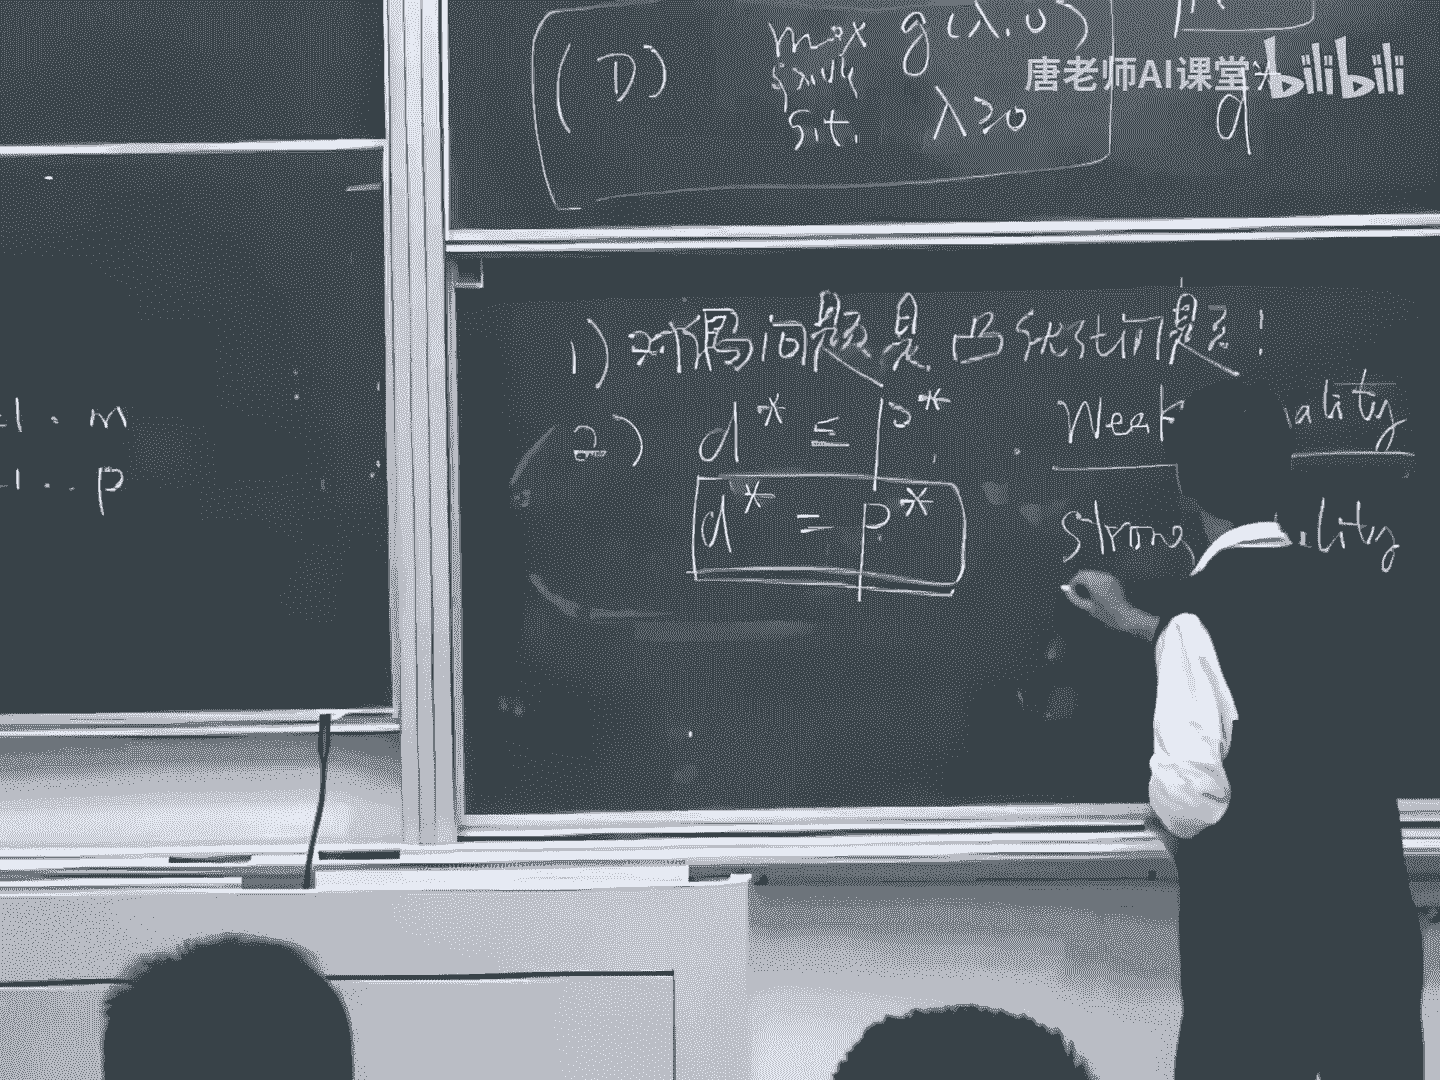 (D) max g(λ,υ)
s.t. λ≥0
d*
唐老师AI课堂 bilibili
=1..m
=1..p
1) 对偶问题是凸优化问题!
(2) d* ≤ p*. Weak ality
d* = p* Strong ality